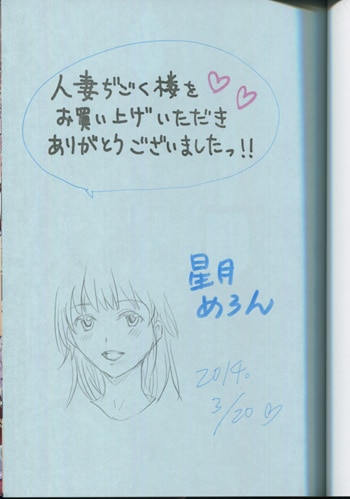 人妻ぢごく楼を♡♡
お買い上げいただき
ありがとうございましたっ!!
星月
めろん
2014.
3/20♡